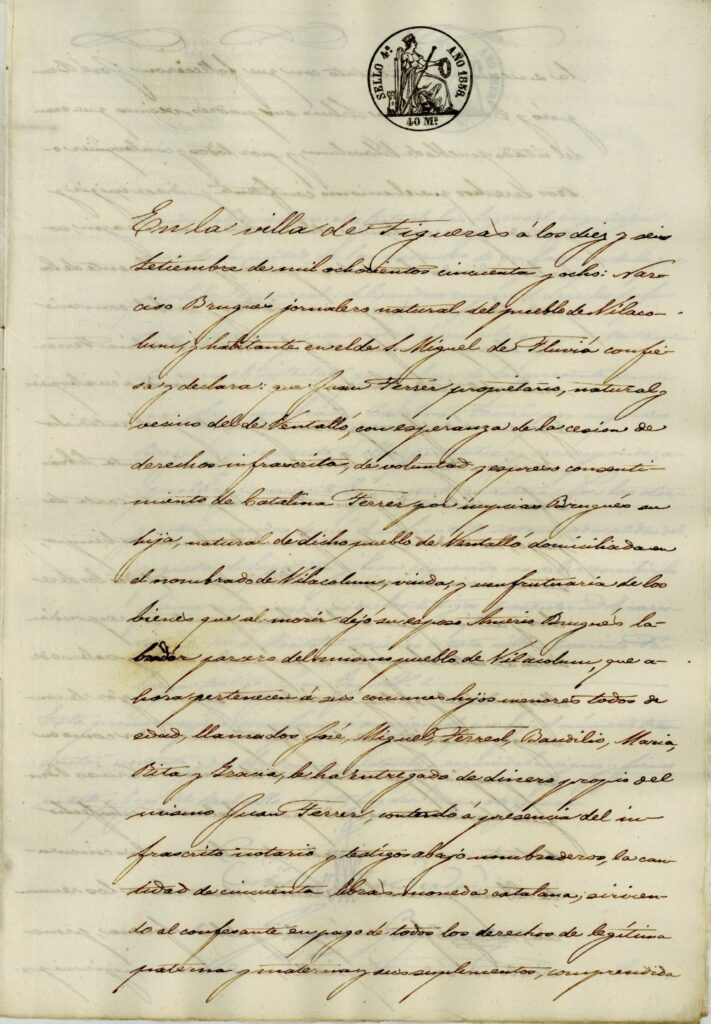 SELLO 4º AÑO 1858.
40 Ms.
En la villa de Figueras á los diez y seis
Setiembre de mil ochocientos cincuenta y ocho: Nar-
ciso Brugués jornalero natural del pueblo de Vilaco-
lum, y habitante en el de S. Miguel de Fluviá confie-
sa y declara: que Juan Ferrer propietario, natural y
vesino del de Ventalló, con esperanza de la cesion de
derechos infrascrita, de voluntad y espreso consenti-
miento de Catalina Ferrér por nupcias Brugués su
hija, natural de dicho pueblo de Ventalló domiciliada en
el nombrado de Vilacolum, viuda, y usufrutuaria de los
bienes que al morir dejó su esposo Brugués la-
brador parcero del mismo pueblo de Vilacolum, que a-
hora pertenecen á sus comunes hijos menores todos de
edad, llamados José, Miguel, Baudilio, Maria,
Rita y Gracia, le ha entregado de dinero propio del
mismo Juan Ferrer, contando á presencia del in-
frascrito notario y testigos abajo nombraderos, la can-
tidad de cincuenta libras moneda catalana; sirvien-
do al confesante en pago de todos los derechos de legítima
paterna y materna y sus suplementos, comprendida